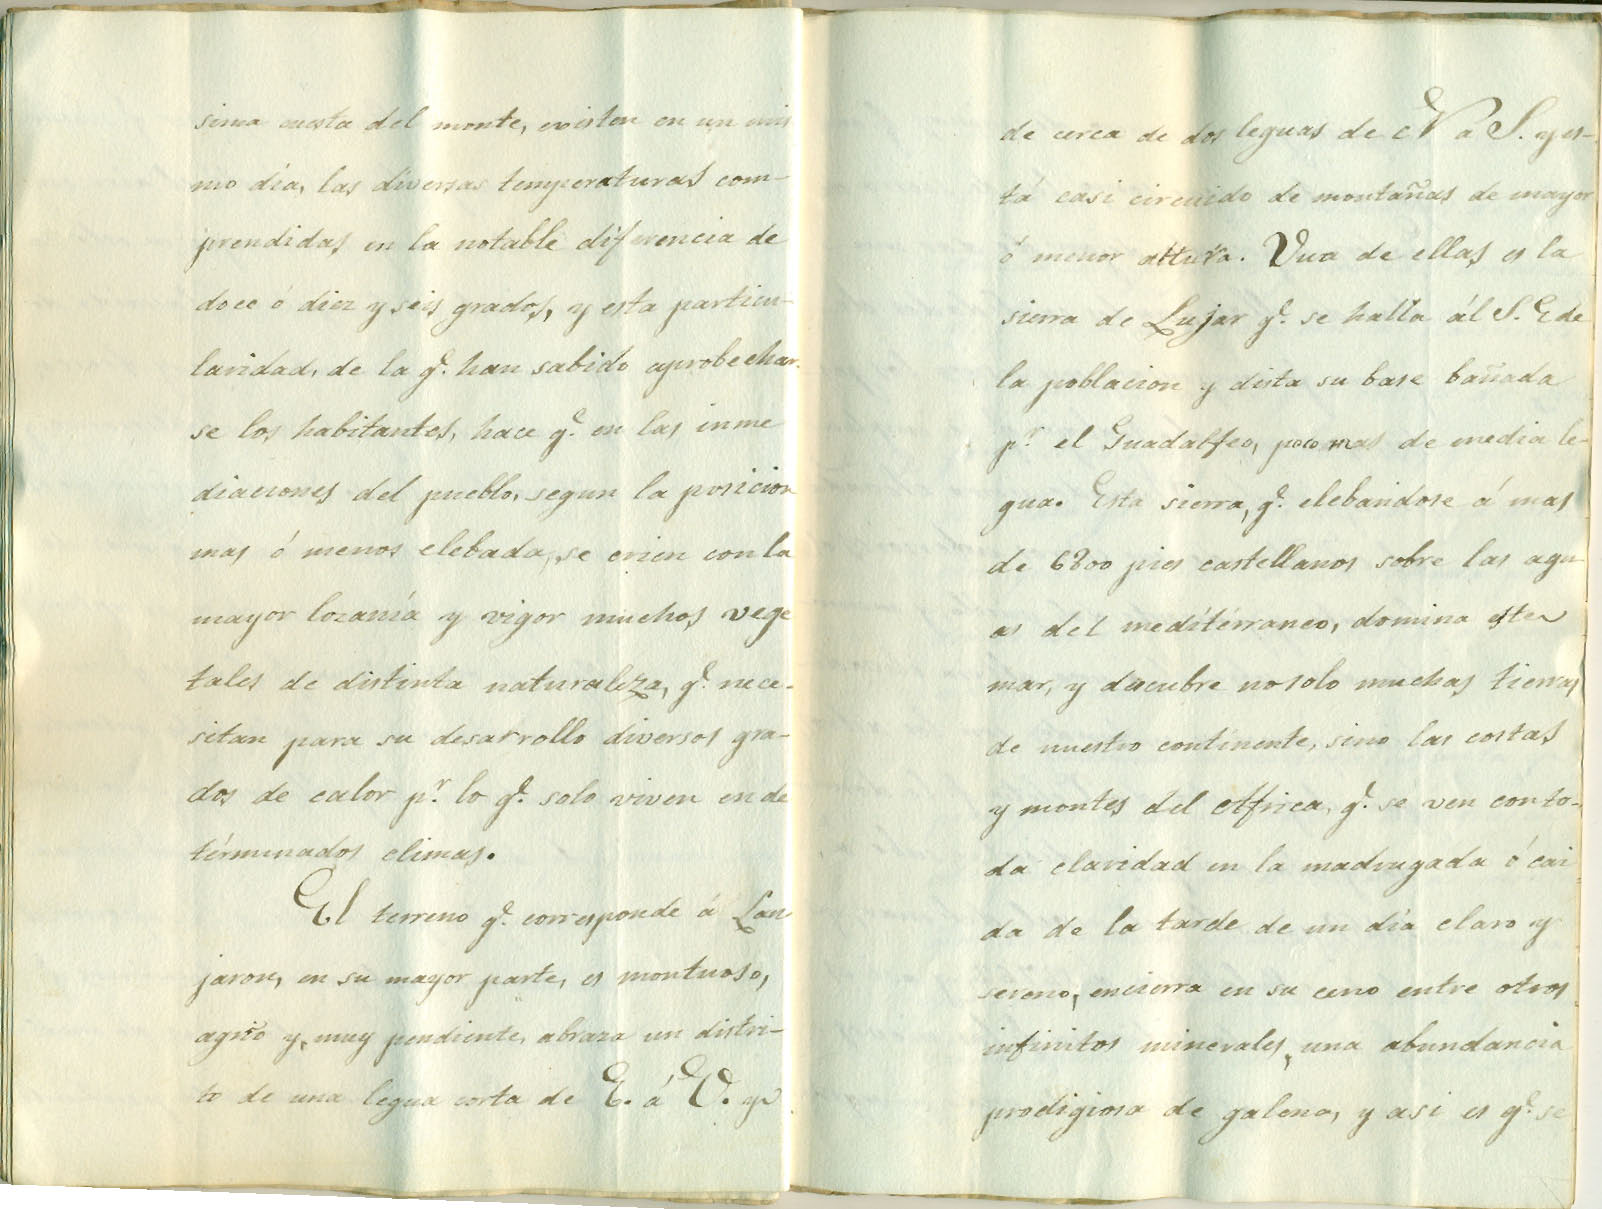 sima cuesta del monte, existen en un mis
mo día, las diversas temperaturas com-
prendidas en la notable diferencia de
doce ó diez y seis grados, y esta particu-
laridad, de la q.e han sabido aprobechar-
se los habitantes, hace q.e en las inme
diaciones del pueblo, segun la posicion
mas ó menos elebada, se crien con la
mayor lozanía y vigor muchos vege
tales de distinta naturaleza, q.e nece-
sitan para su desarrollo diversos gra-
dos de calor p.r lo q.e solo viven en de
términados climas.
El terreno q.e corresponde á Lan
jaron, en su mayor parte, es montuoso,
agrio y muy pendiente, abraza un distri-
to de una legua corta de E. á O. y
de cerca de dos leguas de N a S. y es-
tá casi circuido de montañas de mayor
ó menor altura. Una de ellas es la
sierra de Lujar q.e se halla ál S. E de
la poblacion y dista su base bañada
p.r el Guadalfeo, poco mas de media le-
gua. Esta sierra, q.e elebandose á mas
de 6800 pies castellanos sobre las agu
as del mediterraneo, domina este
mar, y descubre no solo muchas tierras
de nuestro continente, sino las costas
y montes del Africa, q.e se ven con to-
da claridad en la madrugada ó cai
da de la tarde de un día claro y
sereno, encierra en su ceno entre otros
infinitos minerales, una abundancia
prodigiosa de galena, y asi es q.e se